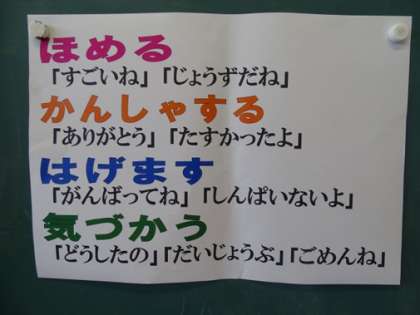 ほめる
「すごいね」「じょうずだね」
かんしゃする
「ありがとう」「たすかったよ」
はげます
「がんばってね」「しんぱいないよ」
気づかう
「どうしたの」「だいじょうぶ」「ごめんね」